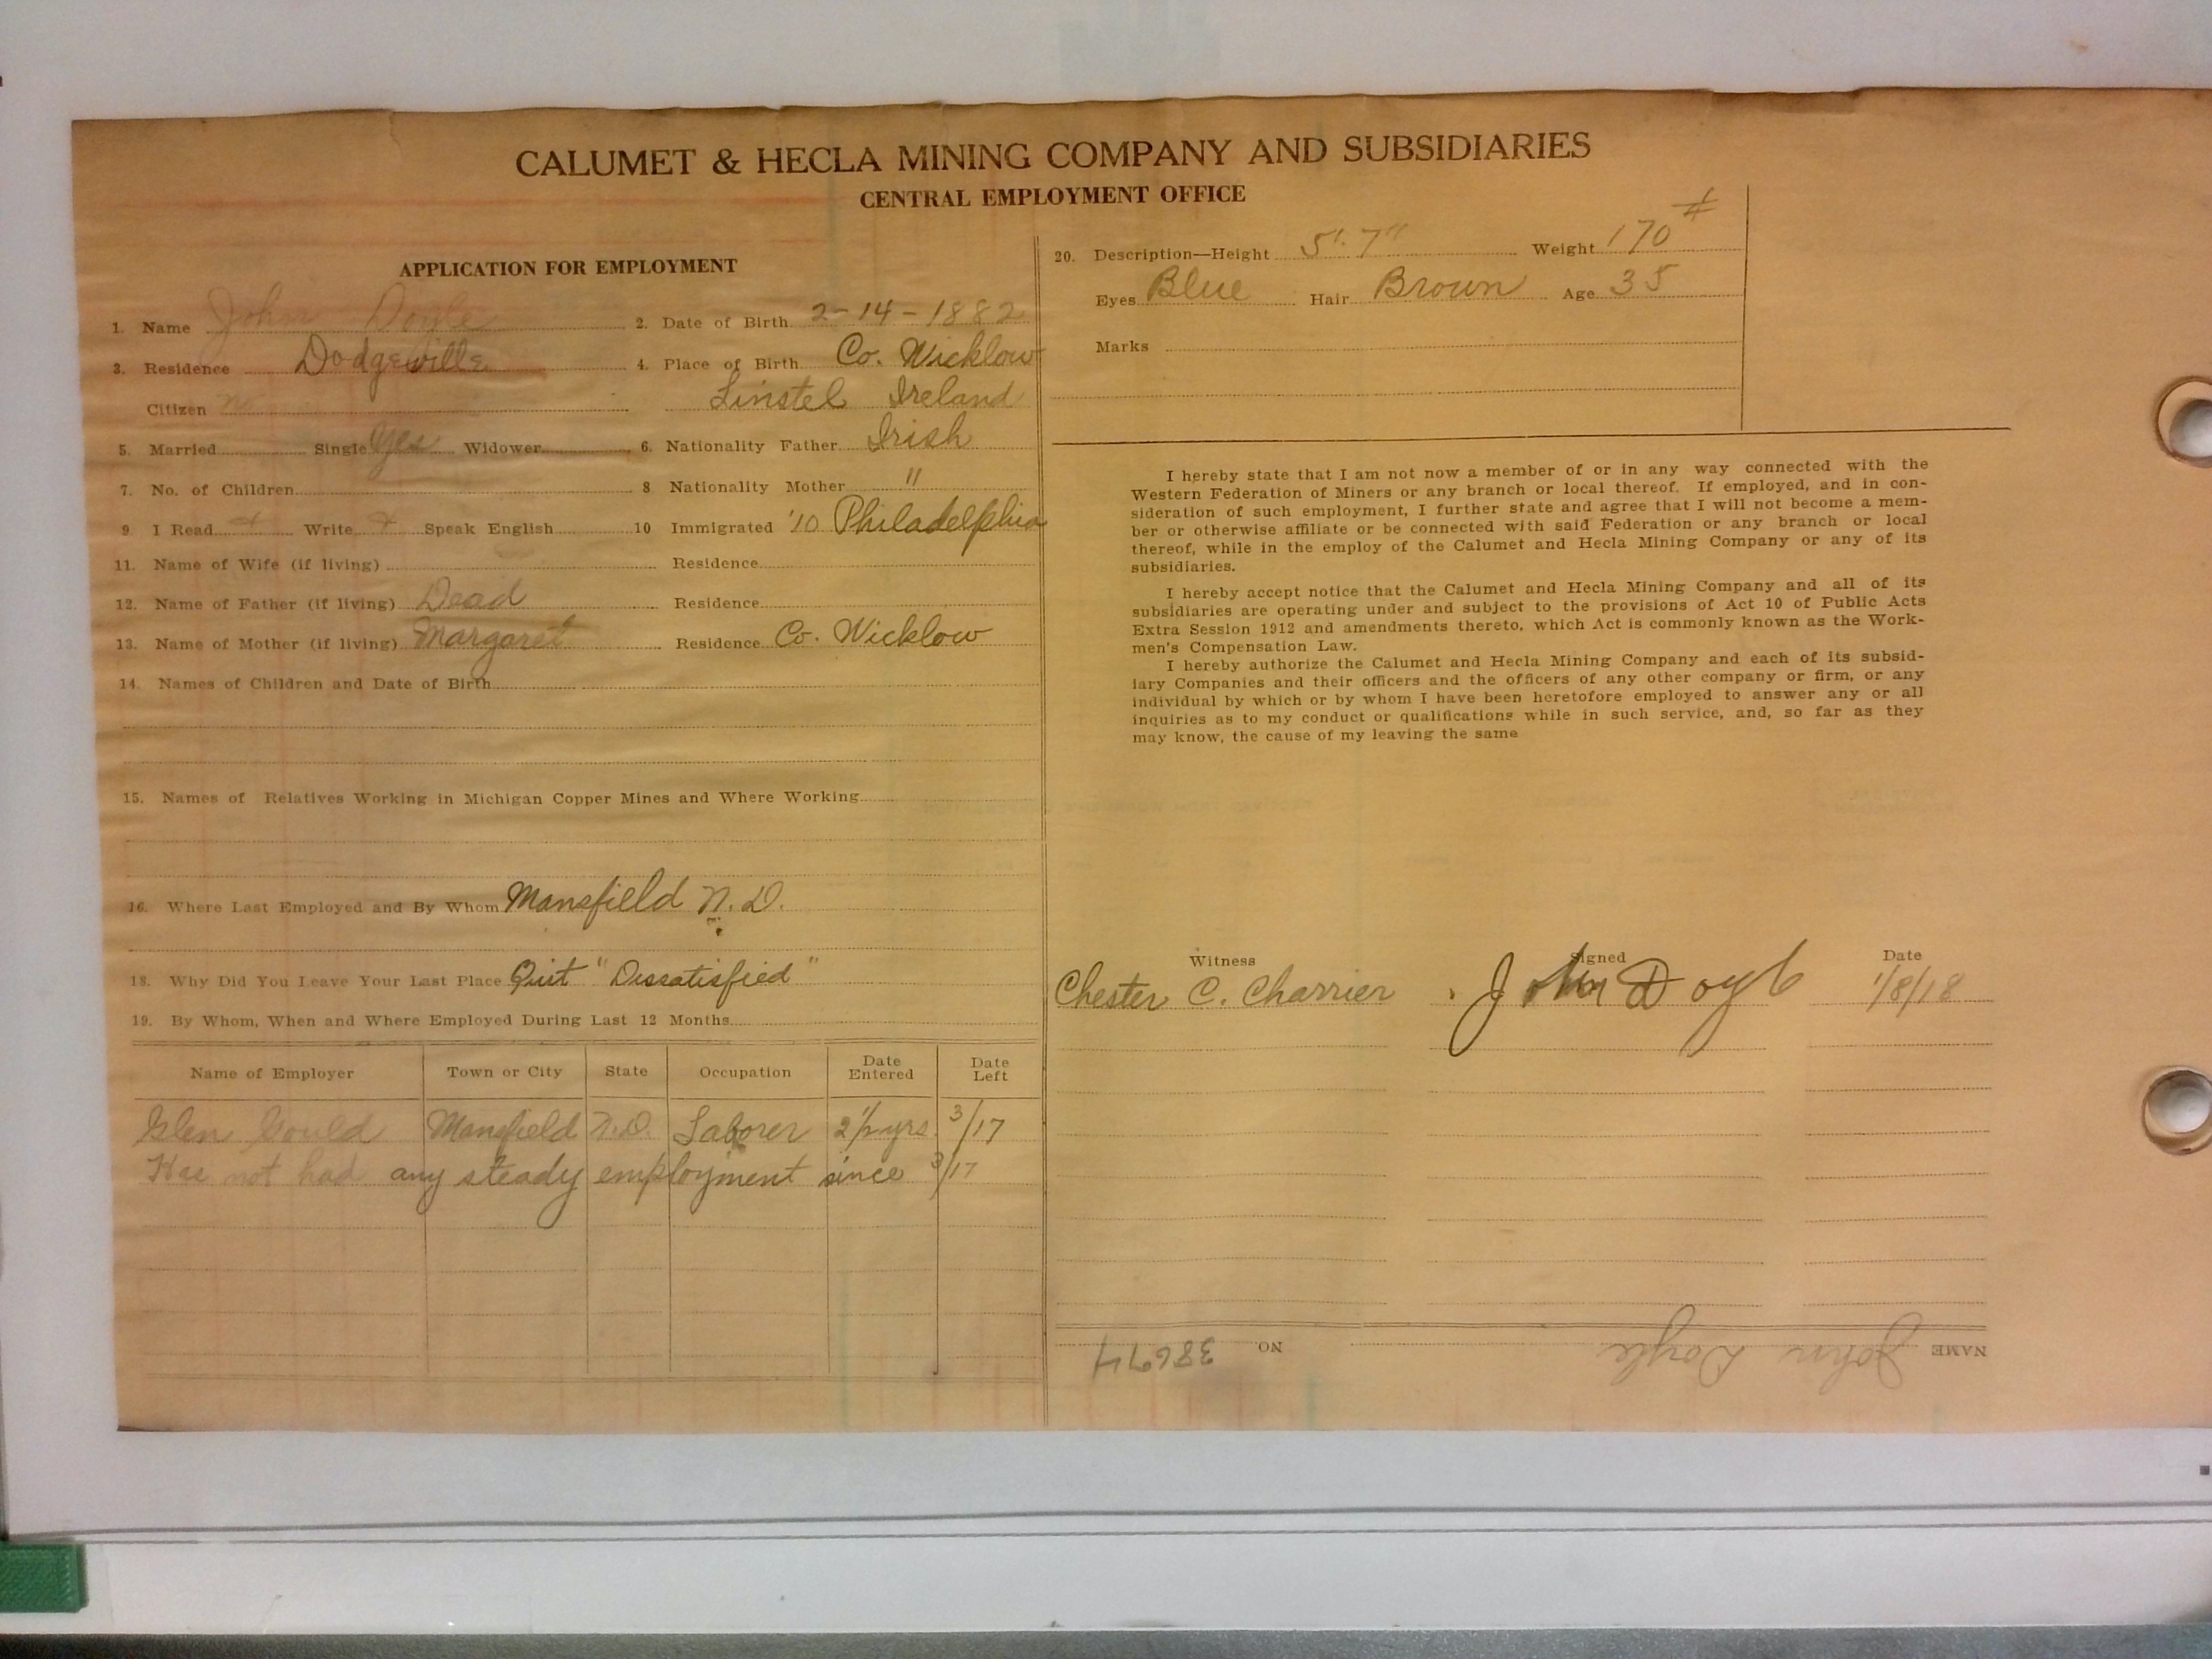 CALUMET & HECLA MINING COMPANY AND SUBSIDIARIES
CENTRAL EMPLOYMENT OFFICE
APPLICATION FOR EMPLOYMENT
1. Name John Doyle 2. Date of Birth 2-14-1882
3. Residence Dodgeville 4. Place of Birth Co. Wicklow
Citizen Linstel Ireland
5. Married Single Yes Widower 6. Nationality Father Irish
7. No. of Children 8 Nationality Mother "
9 I Read Write Speak English 10 Immigrated '10 Philadelphia
11. Name of Wife (if living) Residence
12. Name of Father (if living) Dead Residence
13. Name of Mother (if living) Margaret Residence Co. Wicklow
14. Names of Children and Date of Birth
15. Names of Relatives Working in Michigan Copper Mines and Where Working
16. Where Last Employed and By Whom Mansfield N.D.
18. Why Did You Leave Your Last Place Quit "Dissatisfied"
19. By Whom, When and Where Employed During Last 12 Months
Name of Employer Town or City State Occupation Date Entered Date Left
Glen Gould Mansfield N.D. Laborer 2 1/2 yrs. 3/17
Has not had any steady employment since 3/17
20. Description—Height 5'. 7" Weight 170 #
Eyes Blue Hair Brown Age 35
Marks
I hereby state that I am not now a member of or in any way connected with the
Western Federation of Miners or any branch or local thereof. If employed, and in con-
sideration of such employment, I further state and agree that I will not become a mem-
ber or otherwise affiliate or be connected with said Federation or any branch or local
thereof, while in the employ of the Calumet and Hecla Mining Company or any of its
subsidiaries.
I hereby accept notice that the Calumet and Hecla Mining Company and all of its
subsidiaries are operating under and subject to the provisions of Act 10 of Public Acts
Extra Session 1912 and amendments thereto, which Act is commonly known as the Work-
men's Compensation Law.
I hereby authorize the Calumet and Hecla Mining Company and each of its subsid-
iary Companies and their officers and the officers of any other company or firm, or any
individual by which or by whom I have been heretofore employed to answer any or all
inquiries as to my conduct or qualifications while in such service, and, so far as they
may know, the cause of my leaving the same
Witness Signed Date
Chester C. Charrier John Doyle 1/8/18
NAME John Doyle NO 38674